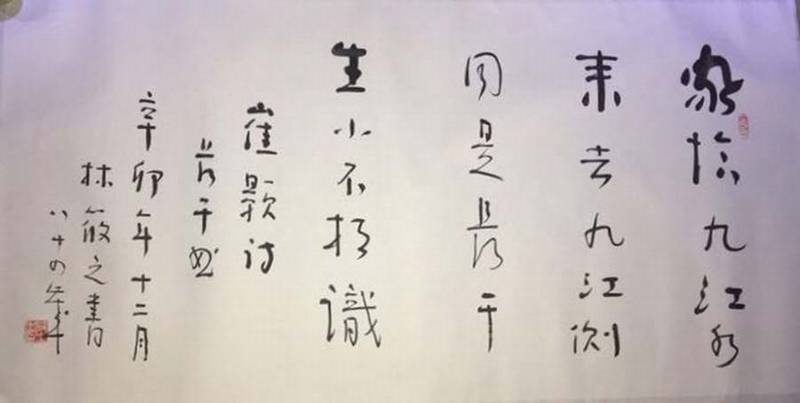 家临九江水
来去九江侧
同是长干
生小不相識
崔颢诗
长干曲
辛卯年十二月
林筱之書
八十四